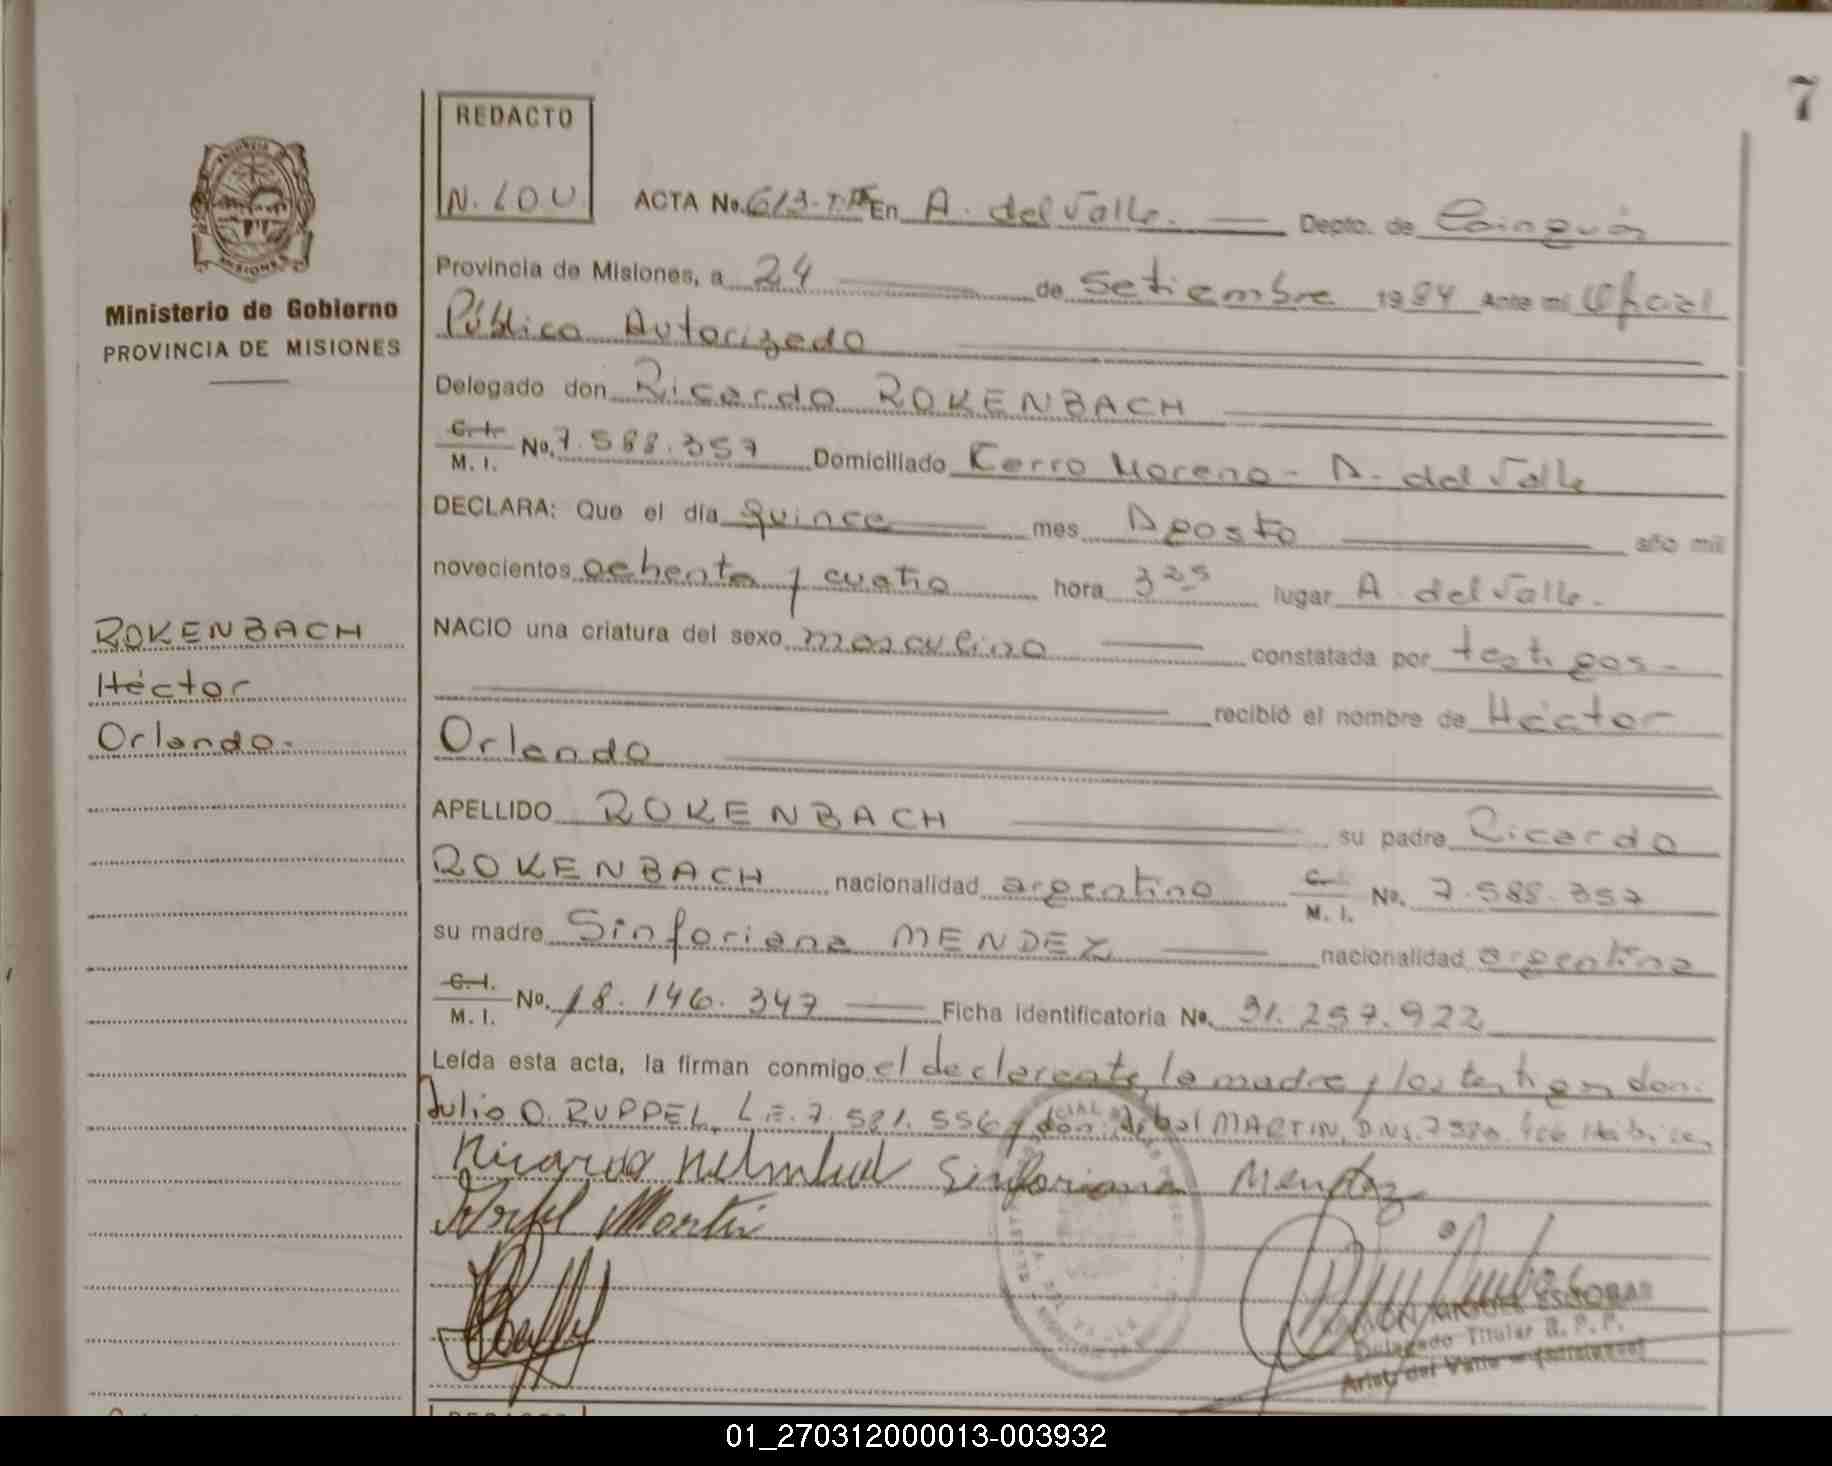 7
REDACTO
N. LOU
ACTA No. 613-T. En A. del Valle. Depto. de Cainguás
Ministerio de Gobierno
PROVINCIA DE MISIONES
Provincia de Misiones, a 24 de Setiembre 1984 Ante mi Oficial
Público Autorizado
Delegado don Ricardo ROKENBACH
C. I. M. I. No. 7.588.357 Domiciliado Cerro Moreno - A. del Valle
DECLARA: Que el día quince mes Agosto año mil
novecientos ochenta y cuatro hora 3 25 lugar A. del Valle.
NACIO una criatura del sexo masculino constatada por testigos.-
recibió el nombre de Héctor
Orlando
ROKENBACH
Héctor
Orlando.-
APELLIDO ROKENBACH su padre Ricardo
ROKENBACH nacionalidad argentino C. M. I. No. 7.588.357
su madre Sinforiana MENDEZ nacionalidad argentina
C. I. M. I. No. 18.146.347 Ficha identificatoria No. 31.257.922
Leída esta acta, la firman conmigo el declarante, la madre y los testigos don.
Julio O. RUPPEL, L.E. 7.581.556 y don MARTIN, D.N.I.
Ricardo Helmhud Sinforiana Mendez
Martin
ESCOBAR
Delegado Titular R. P. P.
Arist. del Valle - (Misiones)
01_270312000013-003932